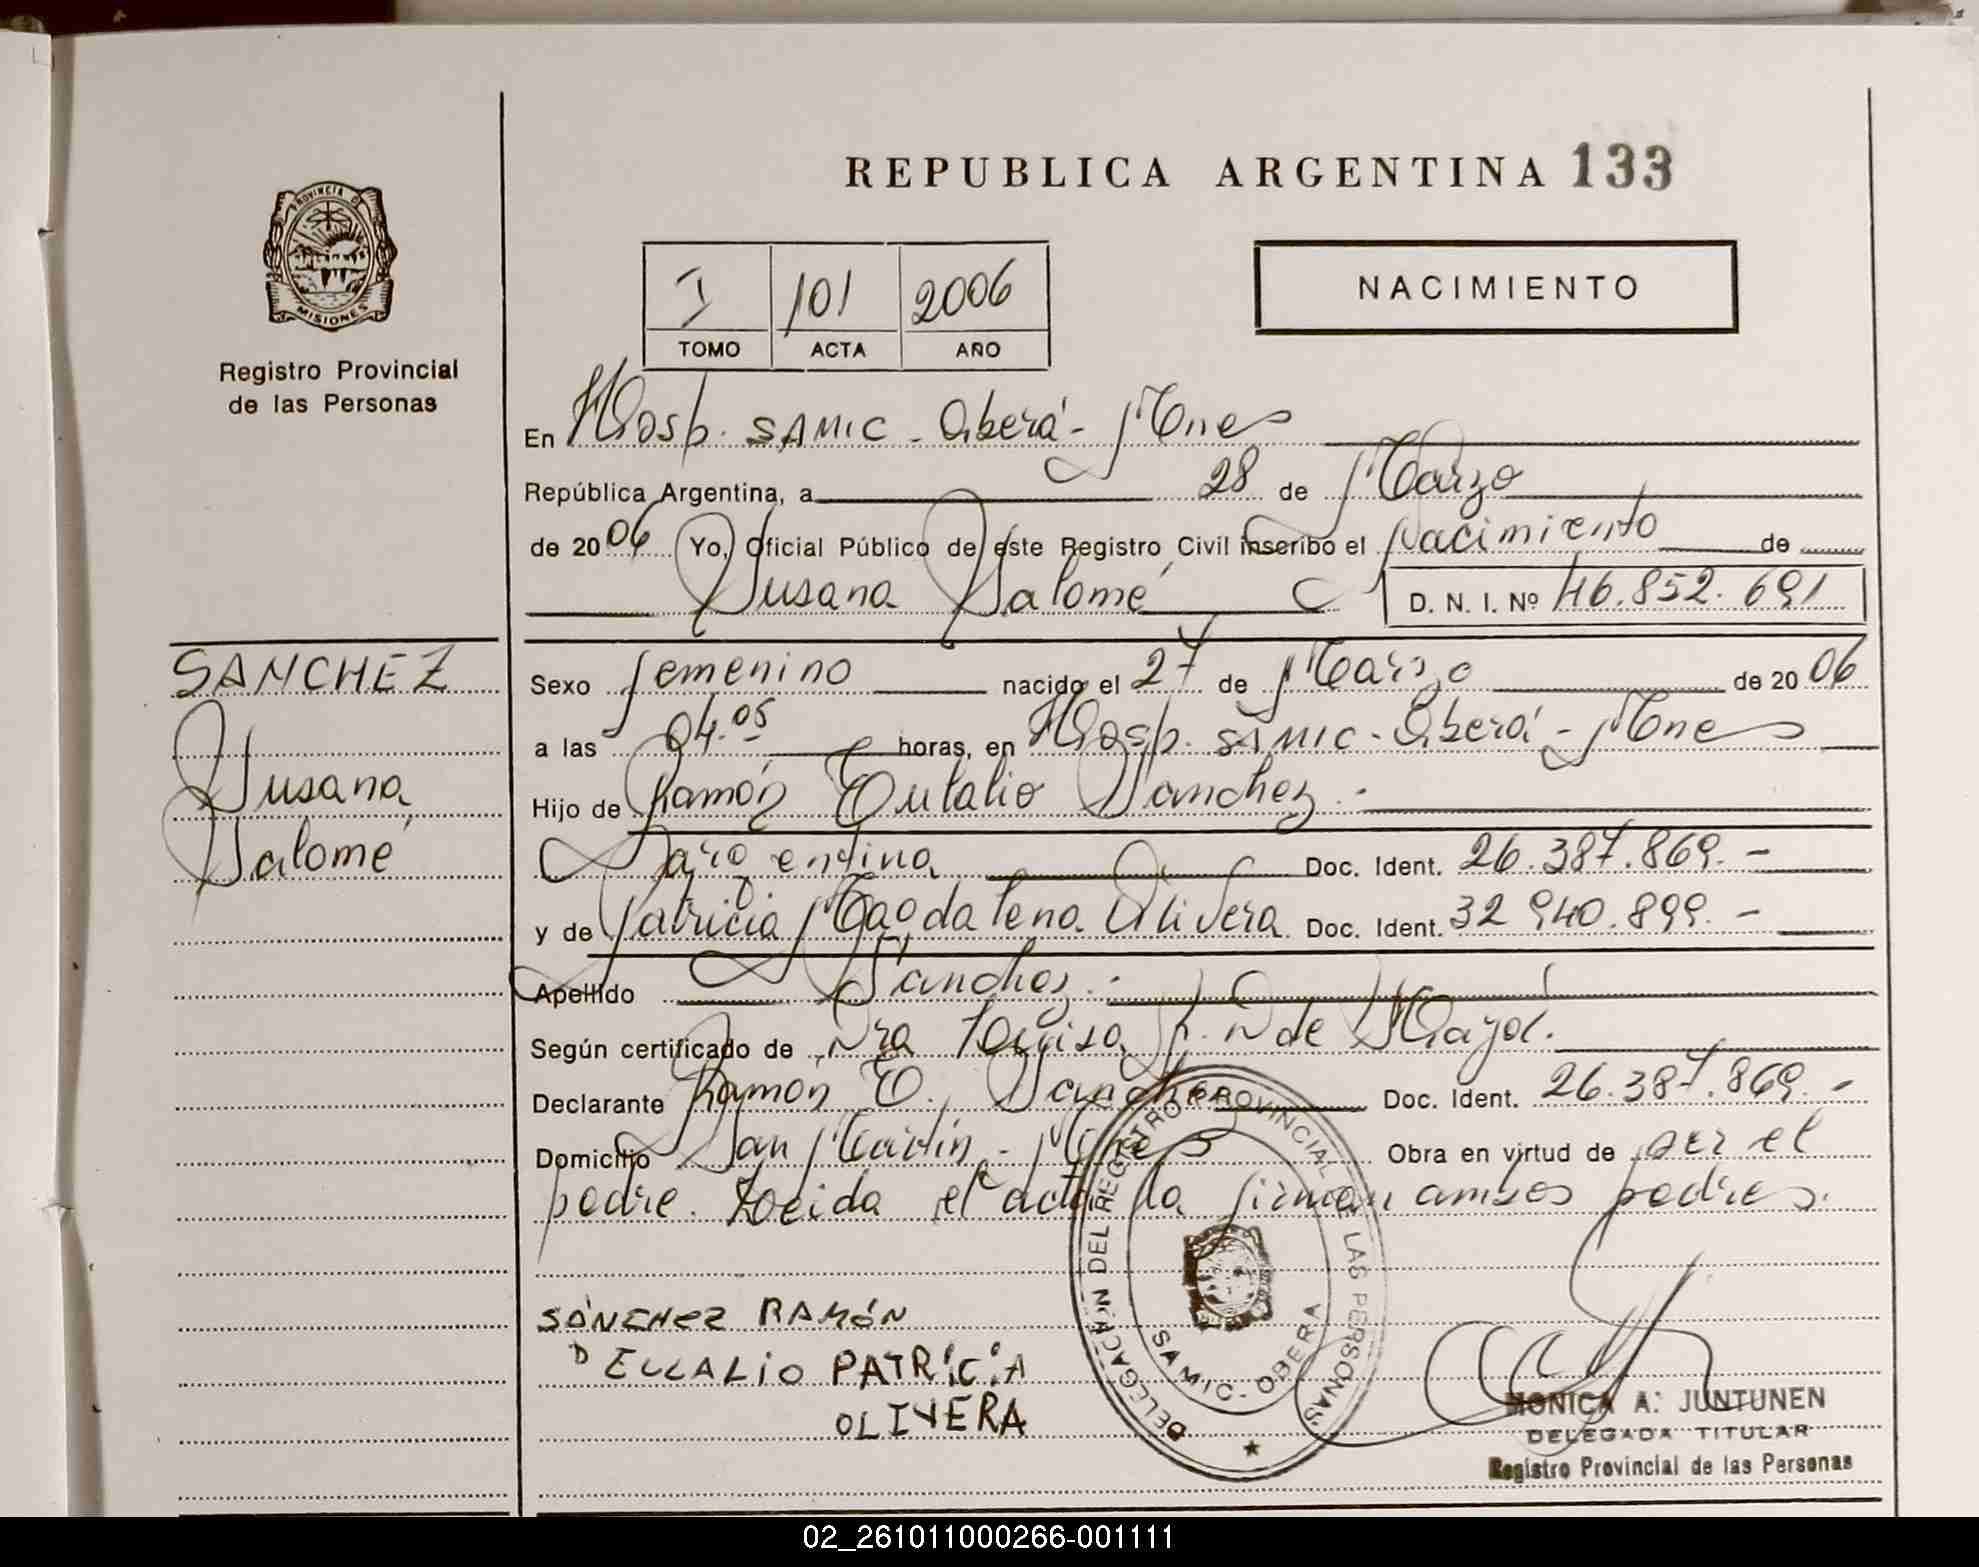 REPUBLICA ARGENTINA 133
PROVINCIA DE
MISIONES
Registro Provincial
de las Personas
I 101 2006
TOMO ACTA AÑO
NACIMIENTO
En Hosp. SAMIC - Oberá - Mnes
República Argentina, a 28 de Marzo
de 2006 Yo, Oficial Público de este Registro Civil inscribo el Nacimiento de
Susana Salomé D. N. I. Nº 46.852.691
SANCHEZ
Susana
Salomé
Sexo femenino nacido el 27 de Marzo de 2006
a las 04.05 horas, en Hosp. SAMIC - Oberá - Mnes
Hijo de Ramón Eulalio Sanchez.-
Argentina Doc. Ident. 26.387.869.-
y de Patricia Magdalena Olivera Doc. Ident. 32 940.899.-
Apellido Sanchez.-
Según certificado de Dra de
Declarante Ramón E. Sanchez Doc. Ident. 26.387.869.-
Domicilio San Martín - Mnes Obra en virtud de ser el
padre. Leida el acta la firman ambos padres.
SÁNCHEZ RAMÓN
EULALIO PATRICIA
OLIVERA
DELEGACION DEL REGISTRO PROVINCIAL DE LAS PERSONAS
SAMIC - OBERA
MONICA A. JUNTUNEN
DELEGADA TITULAR
Registro Provincial de las Personas
02_261011000266-001111